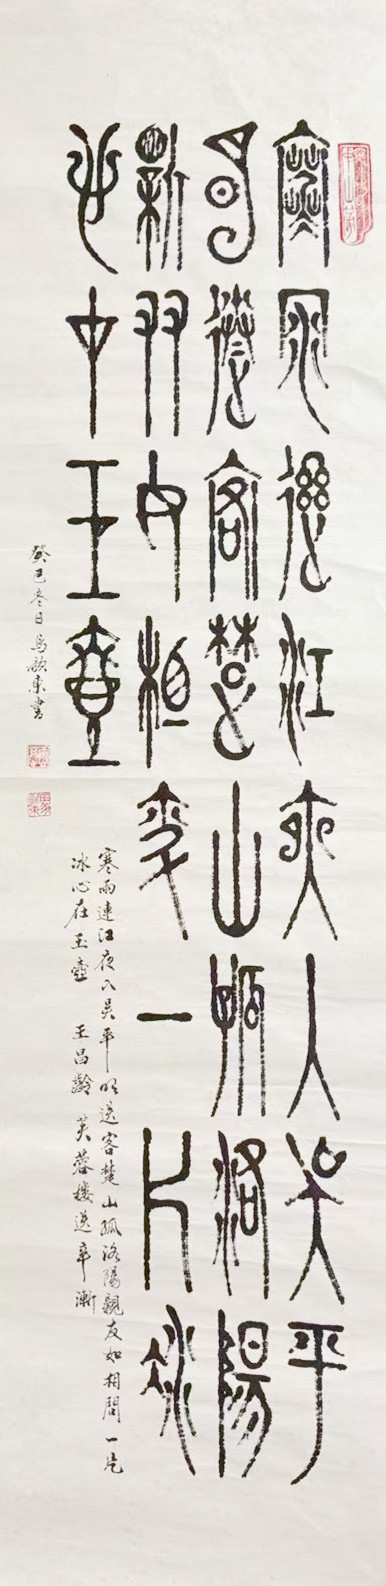 寒雨連江夜入吳平
明送客楚山孤洛陽
親友女相一片冰
心在玉壺
寒雨連江夜入吳平明送客楚山孤洛陽親友如相問一片
冰心在玉壺 王昌齡 芙蓉樓送辛漸
癸巳冬日馬東書